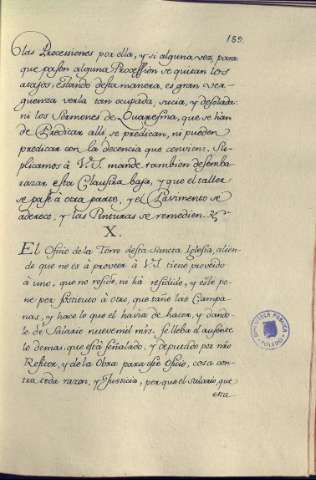 189.
las Procesiones por ella, y si alguna vez, para
que pasen alguna Procession se quitan los
atajos, estando desta manera, es gran ver-
guenza verla tan ocupada, sucia, y desolada:
ni los Sermones de Quaresma, que se han
de Predicar alli se predican, ni pueden
predicar con la decencia que conviene. Su-
plicamos à V.S. mande tambien desemba-
razar esta Claustra baja, y que el taller
se pase à otra parte, y el Pavimento se
aderece, y las Pinturas se remedien.
X.
El Oficio de la Torre desta Sancta Iglesia, alien-
de que no es à proveer à V.S. tiene proveido
à uno, que no reside, ni hà residido, y este po-
ne por sostituto à otro, que tañe las Campa-
nas, y hace lo que el havia de hacer, y dando-
le de Salario nueve mil mrs. se lleva el ausente
lo demas, que està señalado, y deputado por
Refitor, y de la Obra para este Oficio, cosa con-
tra toda razon, y Justicia, por que el salario, que
BIBLIOTECA PUBLICA
TOLEDO